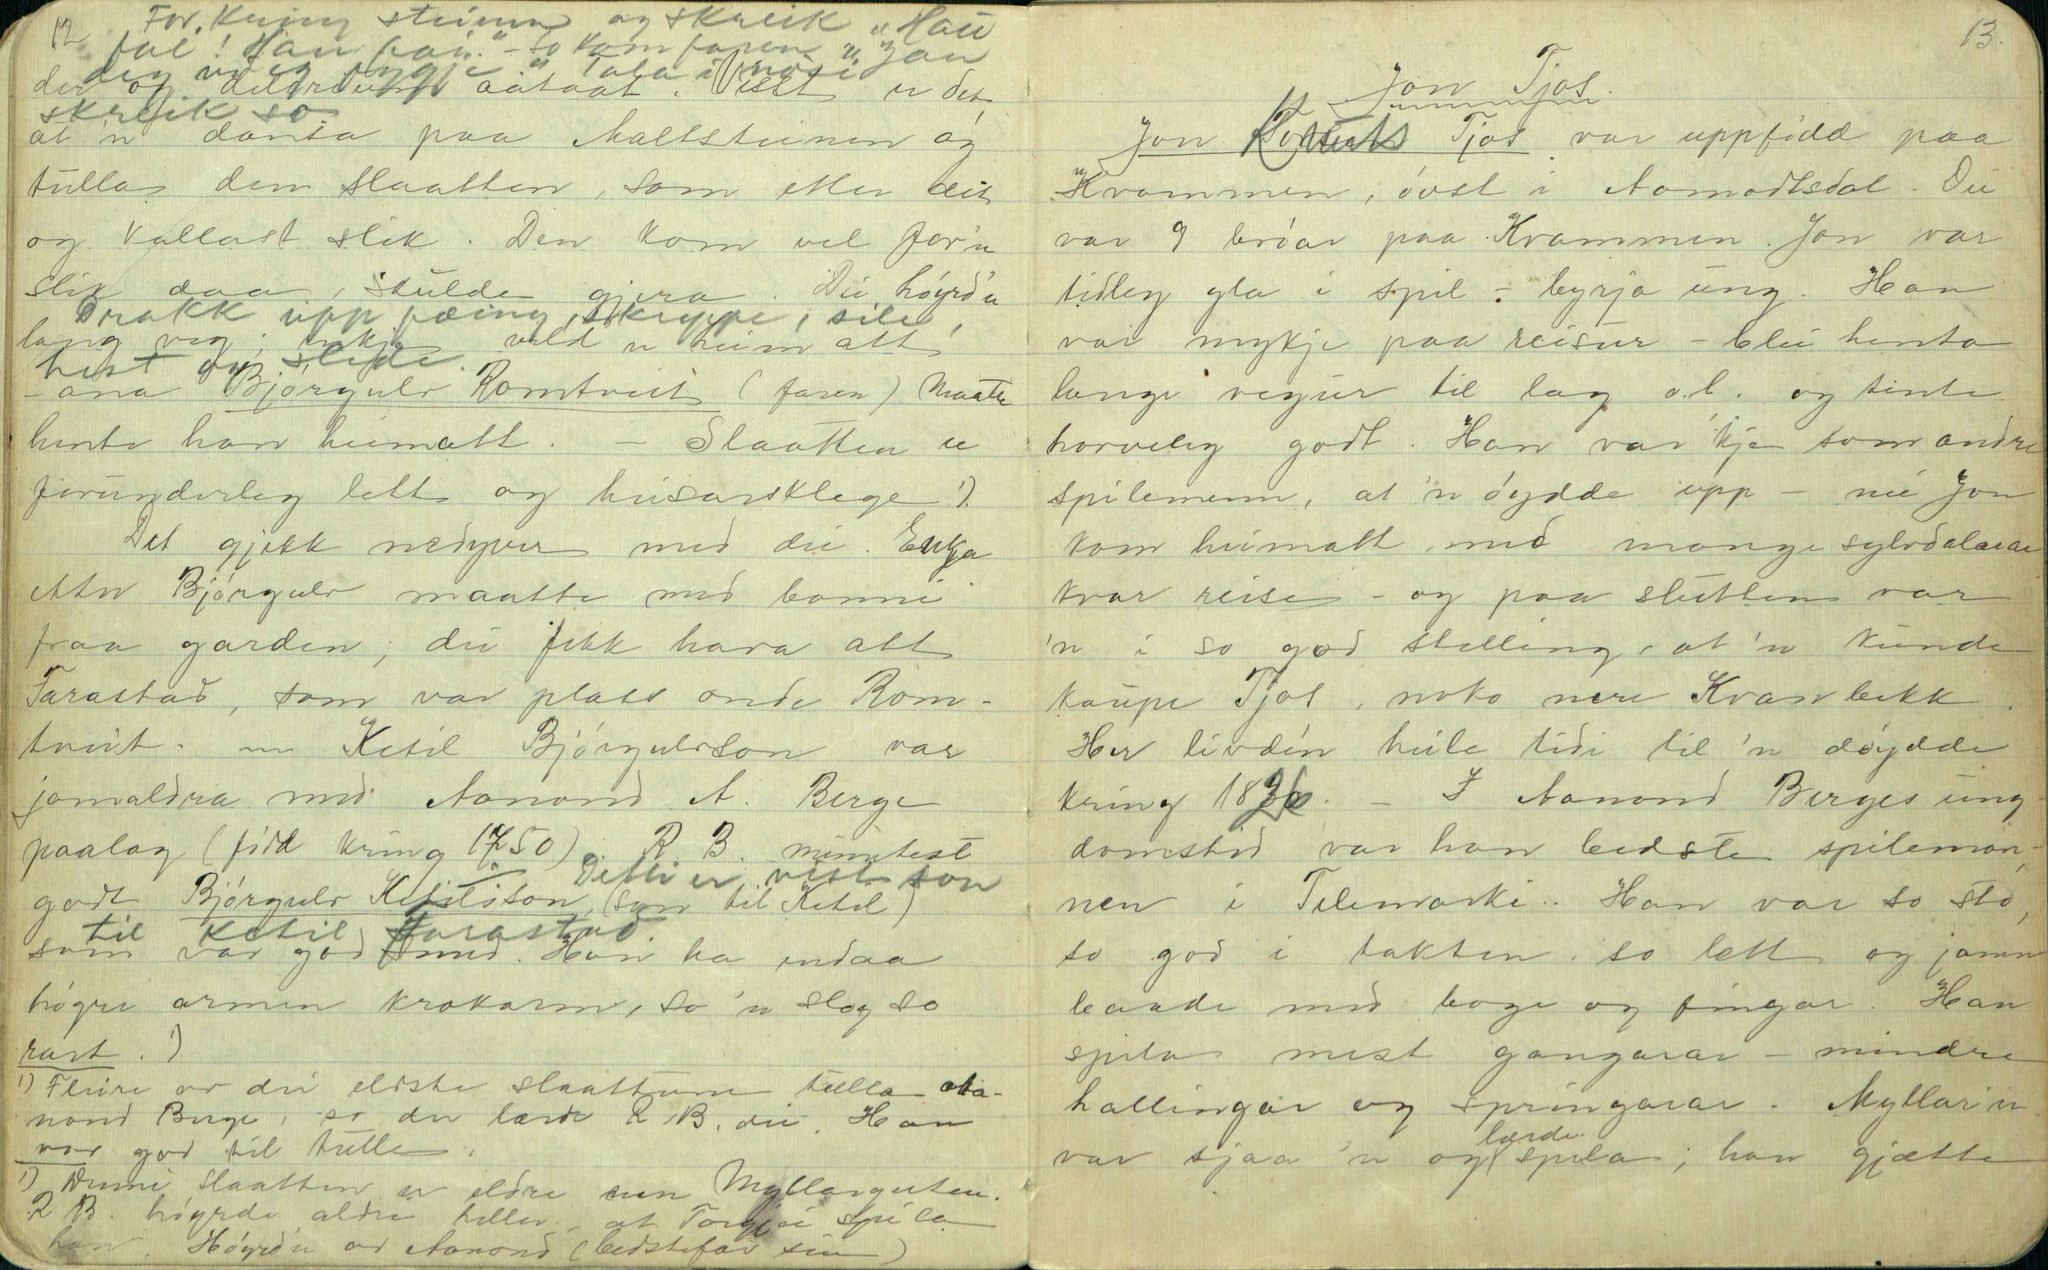 12 For. kring steinen og skreik "Hau
fal! Hau fai." – So kom faren "Jon
skreik so
der og aataat. Visst er det
at 'n dansa paa Maltsteinen óg
tulla den slaatten, som etter dit
og kallast slik. Den kom vel for'n
slik daa, skulde gjera. Dei høyrd'n
Drakk upp pæing, skreppe, sile,
lang veg; inkje vild'n heim att
hest og slede.
– ana Bjørgulv Romtveit (faren) maatte
henta han heimatt. – Slaatten er
forunderleg lett og husarsklege ¹).
Det gjekk nedyver med dei. Enkja
etter Bjørgulv maatte med bonni
fraa garden; dei fekk hava att
Tarastad, som var plass onde Rom-
tveit. — Ketil Bjørgulvson var
jamaldra med Aanond A. Berge
paalag (fødd kring 1750). R. B. minntest
Detti er visst son
godt Bjørgulv Ketilson, (son til Ketil)
til Ketil Tarastad
som var god smed. Han ha endaa
høgre armen krokarm, so 'n slog so
rart. ¹)
¹) Fleire av dei eldste slaattune tulla Aa-
nond Berge, so der lærde R. B. dei. Han
var god til tulle.
¹) Denni slaatten er eldre enn Myllarguten.
R B. høyrde aldri heller at Torgjei spila
han. Høyrd'n av Aanond (bedstefar sin)
13.
Jon Tjos.
Jon Tjos var uppfødd paa
Kvammen, øvst i Aamodtsdal. Dei
var 9 brøar paa Kvammen. Jon var
tidleg gla i spil – byrja ung. Han
var mykje paa reisur – blei henta
lange vegur til lag o.l. og tente
horveleg godt. Han var 'kje som andre
spilemenn, at 'n øydde upp – nei Jon
kom heimatt med mange sylvdalarar
kvar reise – og paa slutten var
'n i so god stelling, at 'n kunde
kaupe Tjos, noko nere Kvanbekk.
Her livd'n heile tidi til 'n døydde
kring 183. – I Aanond Berges ung-
domstid var han bedste spileman-
nen i Telemarki. Han var so stø,
so god i takten, so lett og jamn
baade med boge og fingar. Han
spila mest gangarar – mindre
hallingar og springarar. Myllar'n
lærde
var sjaa 'n og spila; han gjætte